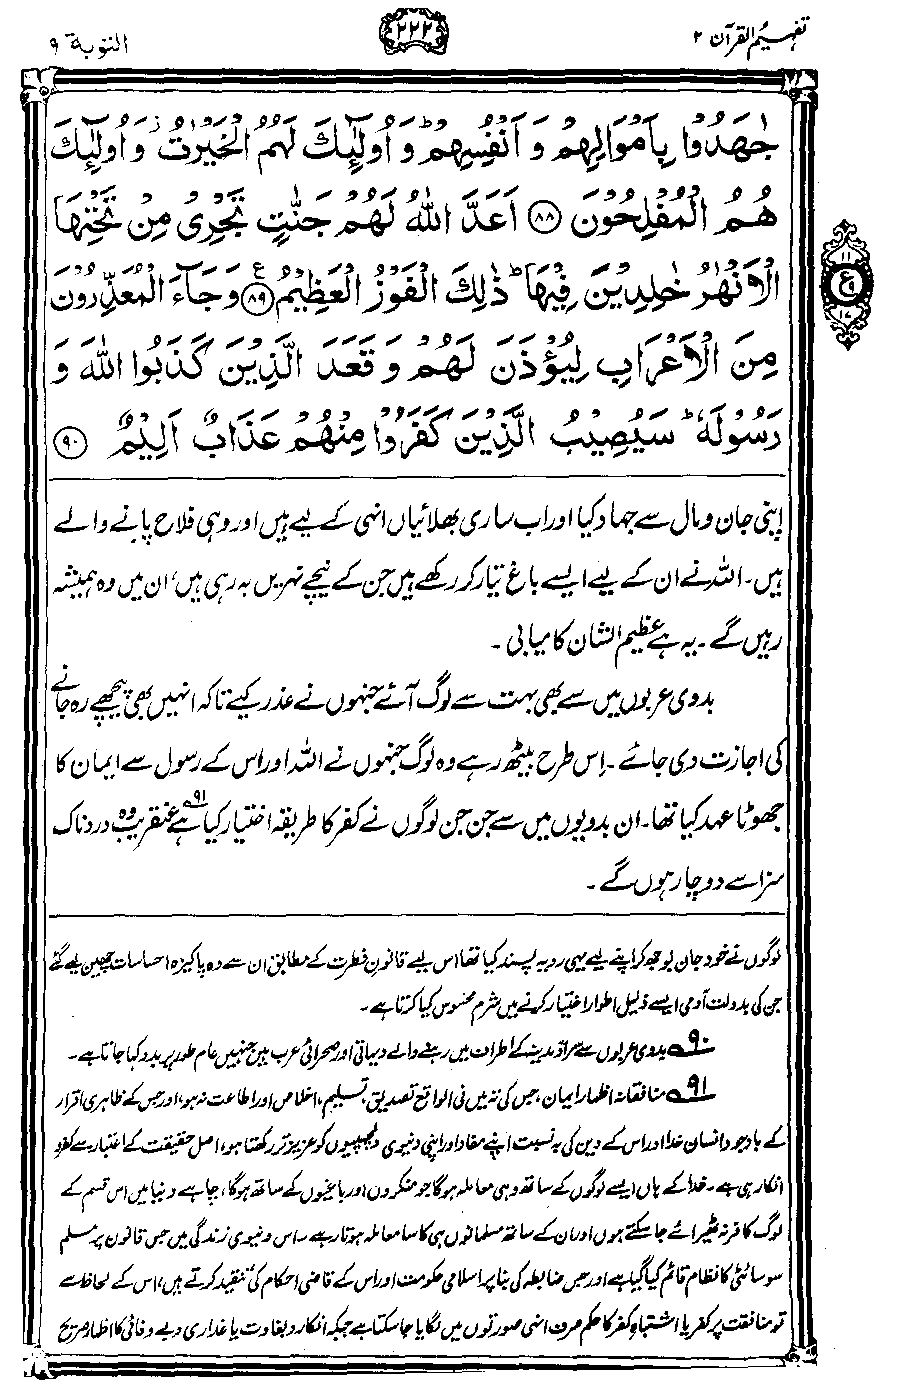 تفہیم القرآن ۲
۲۲۲
التوبۃ ۹
جٰهَدُوْا بِاَمْوَالِهِمْ وَ اَنْفُسِهِمْ ؕ وَ اُولٰٓئِكَ لَهُمُ الْخَيْرٰتُ ؗ وَ اُولٰٓئِكَ
هُمُ الْمُفْلِحُوْنَ ﴿۸۸﴾ اَعَدَّ اللّٰهُ لَهُمْ جَنّٰتٍ تَجْرِىْ مِنْ تَحْتِهَا
الْاَنْهٰرُ خٰلِدِيْنَ فِيْهَا ؕ ذٰلِكَ الْفَوْزُ الْعَظِيْمُ ﴿۸۹﴾ وَ جَآءَ الْمُعَذِّرُوْنَ
مِنَ الْاَعْرَابِ لِيُؤْذَنَ لَهُمْ وَ قَعَدَ الَّذِيْنَ كَذَبُوا اللّٰهَ وَ
رَسُوْلَهٗ ؕ سَيُصِيْبُ الَّذِيْنَ كَفَرُوْا مِنْهُمْ عَذَابٌ اَلِيْمٌ ﴿۹۰﴾
۱۱
ع
۹
۱۷
اپنی جان و مال سے جہاد کیا اور اب ساری بھلائیاں انہی کے لیے ہیں اور وہی فلاح پانے والے
ہیں۔ اللہ نے ان کے لیے ایسے باغ تیار کر رکھے ہیں جن کے نیچے نہریں بہ رہی ہیں، ان میں وہ ہمیشہ
رہیں گے۔ یہ ہے عظیم الشان کامیابی۔
بدوی عربوں میں سے بھی بہت سے لوگ آئے جنہوں نے عذر کیے تاکہ انہیں بھی پیچھے رہ جانے
کی اجازت دی جائے۔ اِس طرح بیٹھ رہے وہ لوگ جنہوں نے اللہ اور اس کے رسول سے ایمان کا
جھوٹا عہد کیا تھا۔ ان بدویوں میں سے جن جن لوگوں نے کفر کا طریقہ اختیار کیا ہے۹۱ عنقریب وہ دردناک
سزا سے دوچار ہوں گے۔
لوگوں نے خود جان بوجھ کر اپنے لیے یہی رویہ پسند کیا تھا اس لیے قانونِ فطرت کے مطابق ان سے وہ پاکیزہ احساسات چھین لیے گئے
جن کی بدولت آدمی ایسے ذلیل اطوار اختیار کرنے میں شرم محسوس کیا کرتا ہے۔
۹۰ بدوی عربوں سے مراد مدینہ کے اطراف میں رہنے والے دیہاتی اور صحرائی عرب ہیں جنہیں عام طور پر بدو کہا جاتا ہے۔
۹۱ منافقانہ اظہارِ ایمان، جس کی تہ میں فی الواقع تصدیق، تسلیم، اخلاص اور اطاعت نہ ہو، اور جس کے ظاہری اقرار
کے باوجود انسان خدا اور اس کے دین کی بہ نسبت اپنے مفاد اور اپنی دنیوی دلچسپیوں کو عزیز تر رکھتا ہو، اصل حقیقت کے اعتبار سے کفر و
انکار ہی ہے۔ خدا کے ہاں ایسے لوگوں کے ساتھ وہی معاملہ ہوگا جو منکروں اور باغیوں کے ساتھ ہوگا، چاہے دنیا میں اس قسم کے
لوگ کافر نہ ٹھیرائے جا سکتے ہوں اور ان کے ساتھ مسلمانوں ہی کا سا معاملہ ہوتا رہے۔ اس دنیوی زندگی میں جس قانون پر مسلم
سوسائٹی کا نظام قائم کیا گیا ہے اور جس ضابطہ کی بنا پر اسلامی حکومت اور اس کے قاضی احکام کی تنفیذ کرتے ہیں، اس کے لحاظ سے
تو منافقت پر کفر یا اشتباہِ کفر کا حکم صرف انہی صورتوں میں لگایا جا سکتا ہے جبکہ انکار و بغاوت یا غداری و بے وفائی کا اظہار صریح